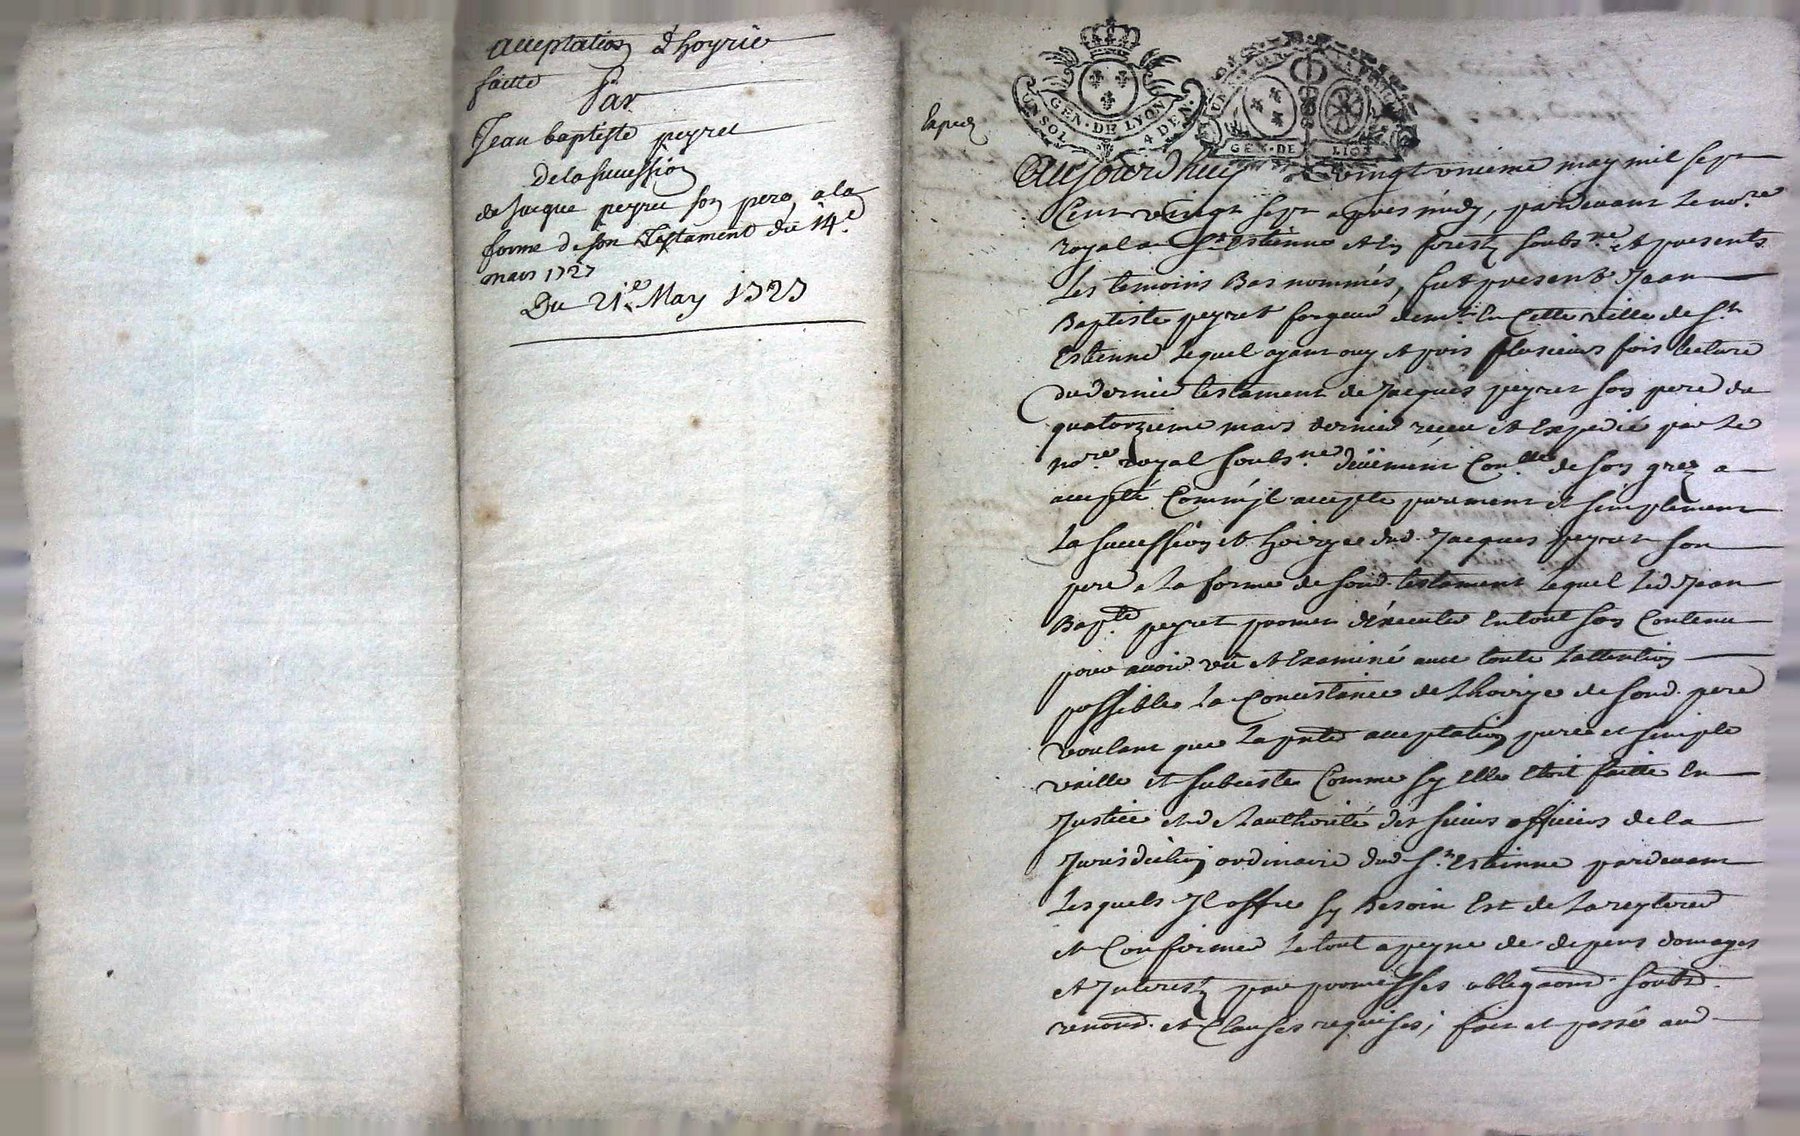 acceptation d'hoyrie
faitte
par
Jean baptiste peyret
de la succession
de Jacque peyret son pere, a la
forme de son Testament du 14e
mars 1727
Du 21e May 1727
UN SOL GEN·DE LYON 4 DEN·
GEN·DE LION
Aujourdhuy vingt unieme may mil sept
Cent vingt sept apres midy, pardevant le nore
royal a St Estienne en forest soubsne et presents
Les temoins Bas nommés, fut present Jean
Baptiste peyret forgeur demt En Cette ville de St
Estienne lequel ayant ouy et pris plusieurs fois lecture
du dernier testament de Jacques peyret son pere du
quatorzieme mars dernier receu et Expedié par le
nore royal soubsne deüement Conllé de son gré a
accepté Comme jl accepte purement et simplement
La succession et hoirye dud. Jacques peyret son
pere a La forme de sond. testament lequel led Jean
Baptte peyret promet d'éxecuter En tout son Contenu
pour avoir vû et Examiné avec toute Lattention
possible la Concistance de Lhoirye de sond. pere
voulant que La pnte acceptation pure et simple
vaille et subciste Comme sy Elle Etoit faitte En
Justice et de Lauthorité des sieurs officiers de la
Jurisdiction ordinaire dud St Estienne pardevant
Lesquels Jl offre sy Besoin Est de La reyterer
et Confirmer Le tout a peyne de depens domages
et Jnterests par promesses obligaons. soubd.
renons. et Clauses requises; fait et passé aud